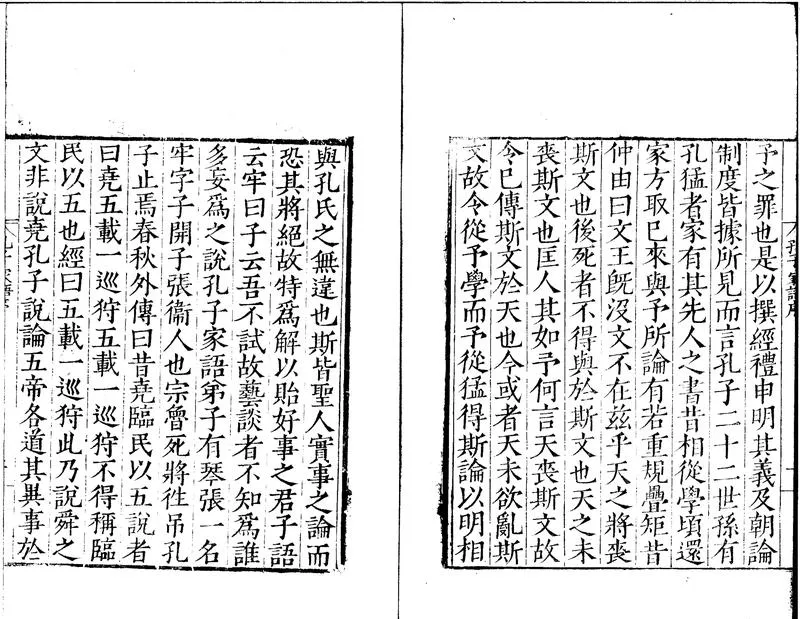 予之罪也是以撰經禮申明其義及朝論
制度皆據所見而言孔子二十二世孫有
孔猛者家有其先人之書昔相從學頃還
家方取已來與予所論有若重規疊矩昔
仲由曰文王旣沒文不在茲乎天之將喪
斯文也後死者不得與於斯文也天之未
喪斯文也匡人其如予何言天喪斯文故
令已傳斯文於天也今或者天未欲亂斯
文故令從予學而予從猛得斯論以明相
與孔氏之無違也斯皆聖人實事之論而
恐其將絕故特爲解以貽好事之君子語
云牢曰子云吾不試故藝談者不知爲誰
多妄爲之說孔子家語弟子有琴張一名
牢字子開子張衞人也宗魯死將徃吊孔
子止焉春秋外傳曰昔堯臨民以五說者
曰堯五載一巡狩五載一巡狩不得稱臨
民以五也經曰五載一巡狩此乃說舜之
文非說堯孔子說論五帝各道其異事於